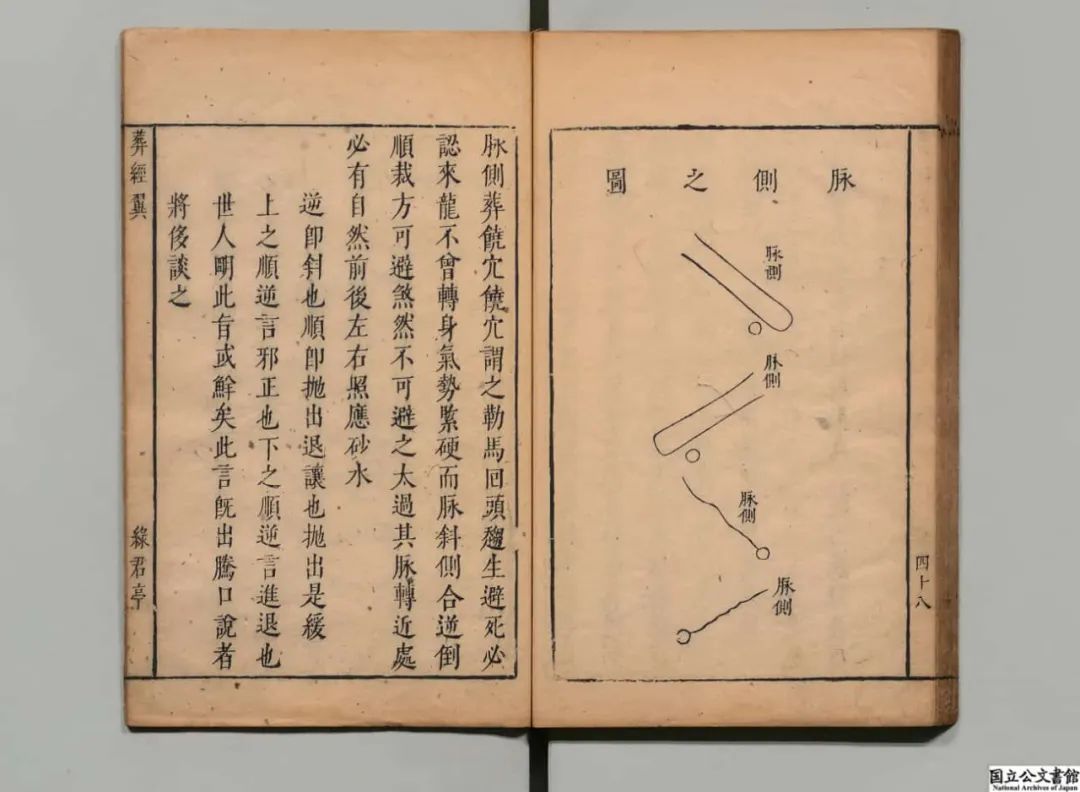 脉側之圖
脉側
脉側
脉側
脉側
四十八
脉側葬饒穴饒穴謂之勒馬回頭趨生避死必
認來龍不曾轉身氣勢緊硬而脉斜側合逆倒
順裁方可避煞然不可避之太過其脉轉近處
必有自然前後左右照應砂水
逆卽斜也順卽抛出退讓也抛出是緩
上之順逆言邪正也下之順逆言進退也
世人明此㫖或鮮矣此言旣出騰口說者
將侈談之
葬經翼
綠君亭
国立公文書館
National Archives of Japan